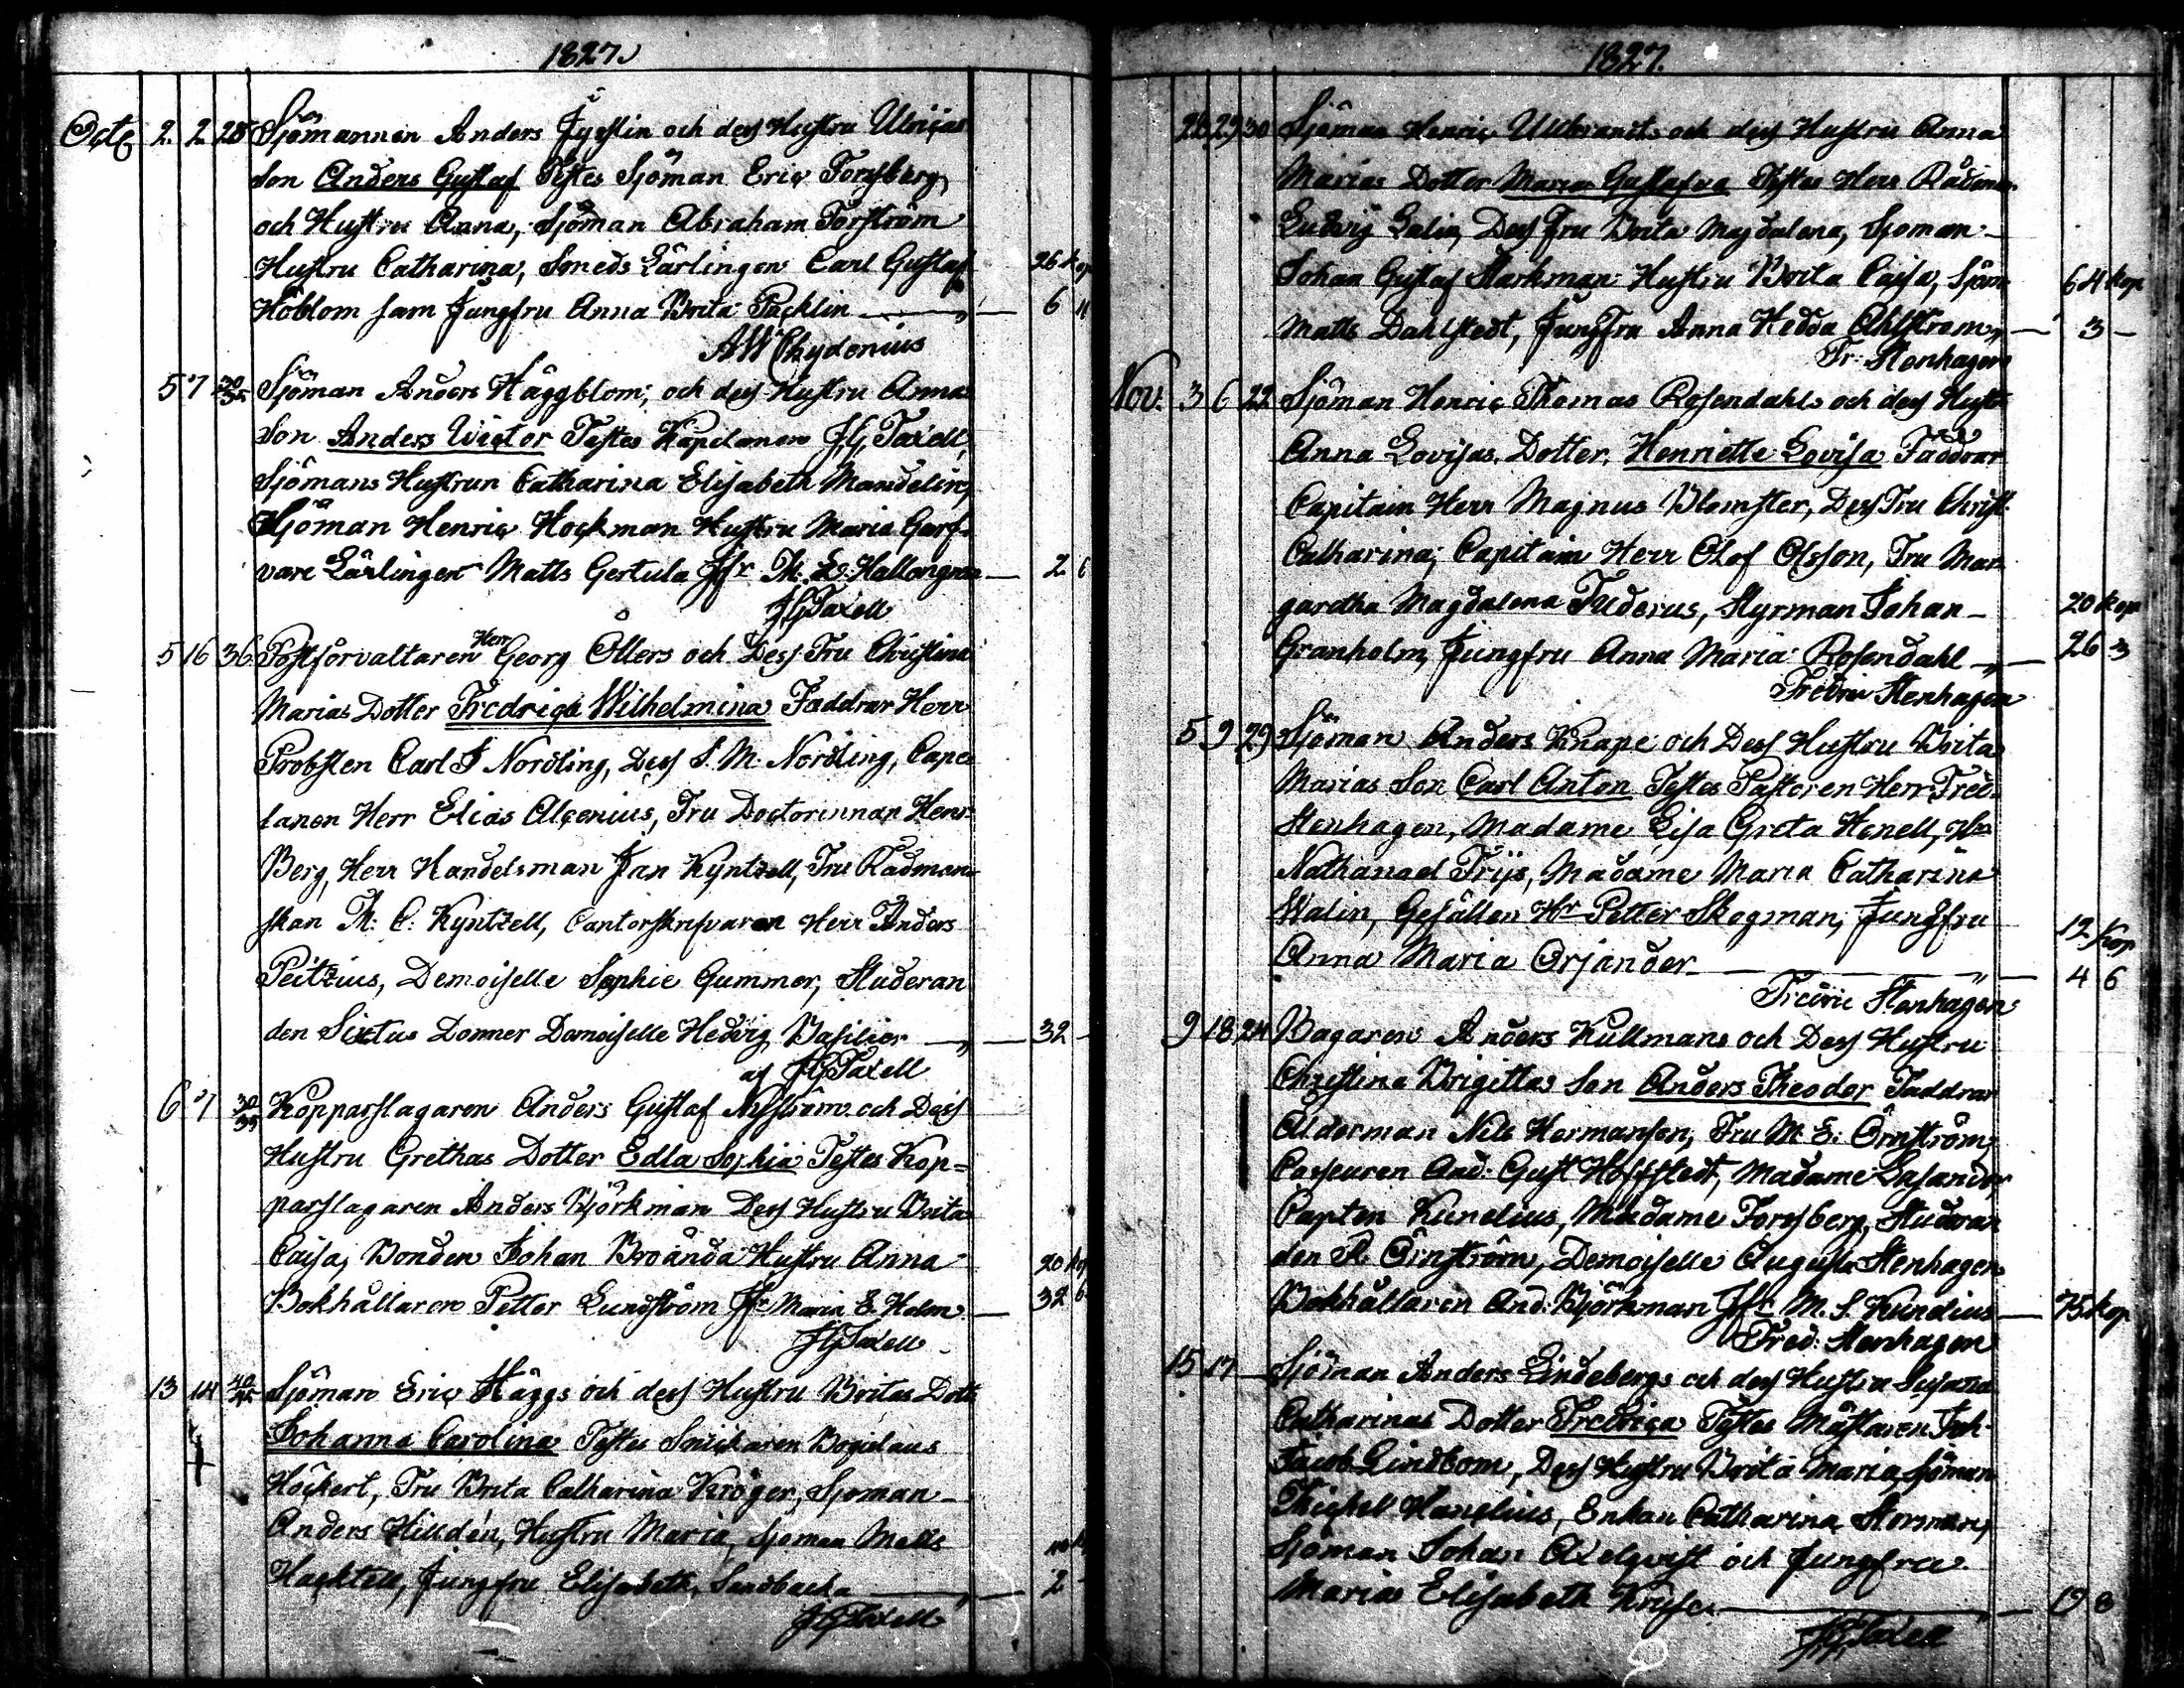 1827.
Octb 2. 2. 28 Sjömannen Anders Fyrstin och dess Hustru Ulricas
Son Anders Gustaf Testes Sjöman Eric Forssberg,
och Hustru Anna, Sjöman Abraham Forström
Hustru Catharina, Smeds Lärlingen Carl Gustaf 26 kop
Höblom sam Jungfru Anna Brita Packlin 6
AW Chydenius
5 7 30/35 Sjöman Anders Häggblom, och dess Hustru Annas
Son Anders Wictor Testes Kapelanen JG Taxell,
Sjömans Hustrun Catharina Elisabeth Mandelin,
Sjöman Henric Hockman Hustru Maria Garf-
vare Lärlingen Matts Gertula Jfr M. L. Hallongren 2 6
JG Taxell
5 16 36 Postförvaltaren Herr Georg Öllers och Dess Fru Christina
Marias Dotter Fredrica Wilhelmina Faddrar Herr
Probsten Carl J Nordling, Dess S. M. Nordling, Cape-
lanen Herr Elias Alcenius, Fru Doctorinnan Henr.
Berg, Herr Handelsman Jan Kyntzell, Fru Rådmans-
skan M. C. Kyntzell, Cantorskrifvaren Herr Anders
Peitzius, Demoiselle Sophie Gummer, Studeran
den Sixtus Donner Demoiselle Hedvig Basilier 32 -
af JG Taxell
6 7 30/35 Kopparslagaren Anders Gustaf Nyström och Dess
Hustru Grethas Dotter Edla Sophia Testes Kop-
parslagaren Anders Björkman Dess Hustru Brita
Caisa, Bonden Johan Broända Hustru Anna 20 kop
Bokhållaren Petter Lundström Jfr Maria E. Holm 32 6
JG Taxell
13 14 40/45 Sjöman Eric Häggs och dess Hustru Britas Dott
Johanna Carolina Testes Snickaren Bogislaus
Höckert, Fru Brita Catharina Kröger, Sjöman
Anders Hilldén, Hustru Maria, Sjöman Matts
Hacktell, Jungfru Elisabeth Sandbacka 2
JG Taxell
1827.
28 29 30 Sjöman Henric Ullbrants och dess Hustru Anna
Marias Dotter Maria Gustafva Testes Herr Rådman
Ludvig Galin, Dess Fru Brita Magdalena, Sjöman
Johan Gustaf Starkman Hustru Brita Caisa, Sjöm 64 kop
Matts Dahlstedt, Jungfru Anna Hedda Ahlström, 3 -
Fr: Stenhagen
Nov. 3 6 22 Sjöman Henric Thomas Rosendahls och dess Hustr
Anna Lovisas, Dotter, Henriette Lovisa Faddrar
Capitain Herr Magnus Blomster, Dess Fru Christ.
Catharina, Capitain Herr Olof Olsson, Fru Mar-
garetha Magdalena Tuderus, Styrman Johan 20 kop
Granholm, Jungfru Anna Maria Rosendahl 26 3
Fredric Stenhagen
5 9 29 Sjöman Anders Knape och Dess Hustru Brita
Marias Son Carl Anton Testes Pastoren Herr Fred.
Stenhagen, Madame Lisa Greta Henell, Hr
Nathanael Frijs, Madame Maria Catharina
Walin, Gesällen Hr Petter Skogman, Jungfru 12 kop
Anna Maria Orjander 4 6
Fredric Stenhagen
9 18 24 Bagaren Anders Kullmans och Dess Hustru
Christina Brigittas Son Anders Theodor Faddrar
Alderman Nils Hermanson, Fru M E: Örnström,
Casseuren And: Gust Hoffstedt, Madame Lasander,
Capten Kunelius, Madame Forssberg, Studeran
den R. Örnström, Demoiselle Augusta Stenhagen
Bokhållaren And: Björkman Jfr M. S. Kunelius 75 kop
Fred: Stenhagen
15 17 Sjöman Anders Lindebergs och dess Hustru Susana
Catharinas Dotter Fredrica Testes Mästaren Joh.
Jacob Lindbom, Dess Hustru Brita Maria, Sjöman
Michel Hanelius, Enkan Catharina Storman,
Sjöman Johan Axelqvist och Jungfru
Maria Elisabeth Kruse 19 8
JG Taxell